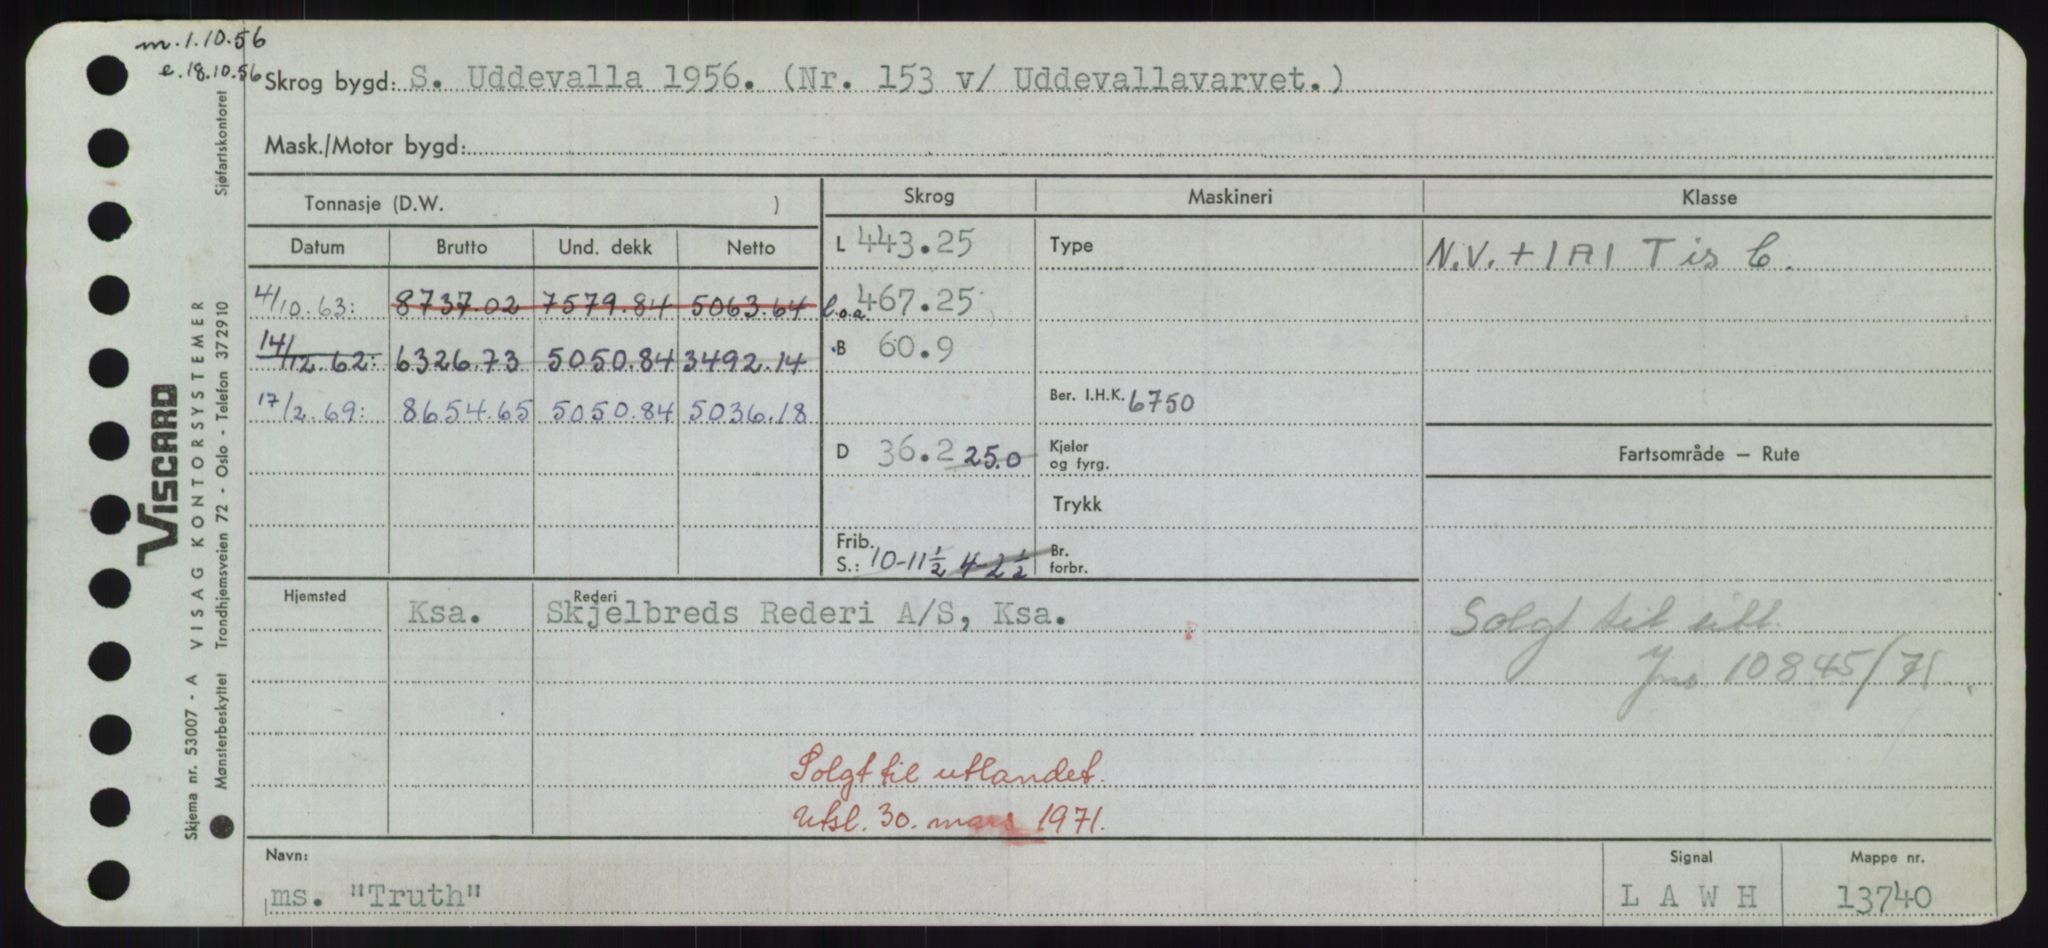 m.1.10.56
e.18.10.56
Skrog bygd: S. Uddevalla 1956. (Nr. 153 v/ Uddevallavarvet.)
Mask./Motor bygd:
Tonnasje (D.W. )
Skrog
Maskineri
Klasse
Datum Brutto Und. dekk Netto
L 443.25
Type
N.V. + 1A1 T is C.
4/10.63: 8737.02 7579.84 5063.64
l.o.a. 467.25
14/12.62: 6326.73 5050.84 3492.14
B 60.9
17/2.69: 8654.65 5050.84 5036.18
Ber. I.H.K. 6750
D 36.2 25.0
Kjeler
og fyrg.
Fartsområde — Rute
Trykk
Frib.
S.: 10-11 1/2 4-2 1/2
Br.
forbr.
Hjemsted
Rederi
Ksa. Skjelbreds Rederi A/S, Ksa.
Solgt til utl.
Jnr. 10845/71.
Solgt til utlandet.
Utsl. 30. mars 1971.
Navn:
ms. "Truth"
Signal
L A W H
Mappe nr.
13740
VISCARD
Skjema nr. 53007 - A VISAG KONTORSYSTEMER
Mønsterbeskyttet Trondhjemsveien 72 - Oslo - Telefon 372910 Sjøfartskontoret